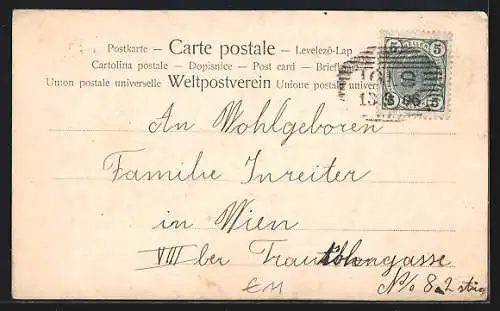 Postkarte — Carte postale — Levelezö-Lap
Cartolina postale — Dopisnice — Post card — Briefk
Union postale universelle Weltpostverein Unione postale univers
5 5
5 5
13 6 06
An Wohlgeboren
Familie Inreiter
in Wien
VIII ber Trautsongasse
No 8. 2 stig